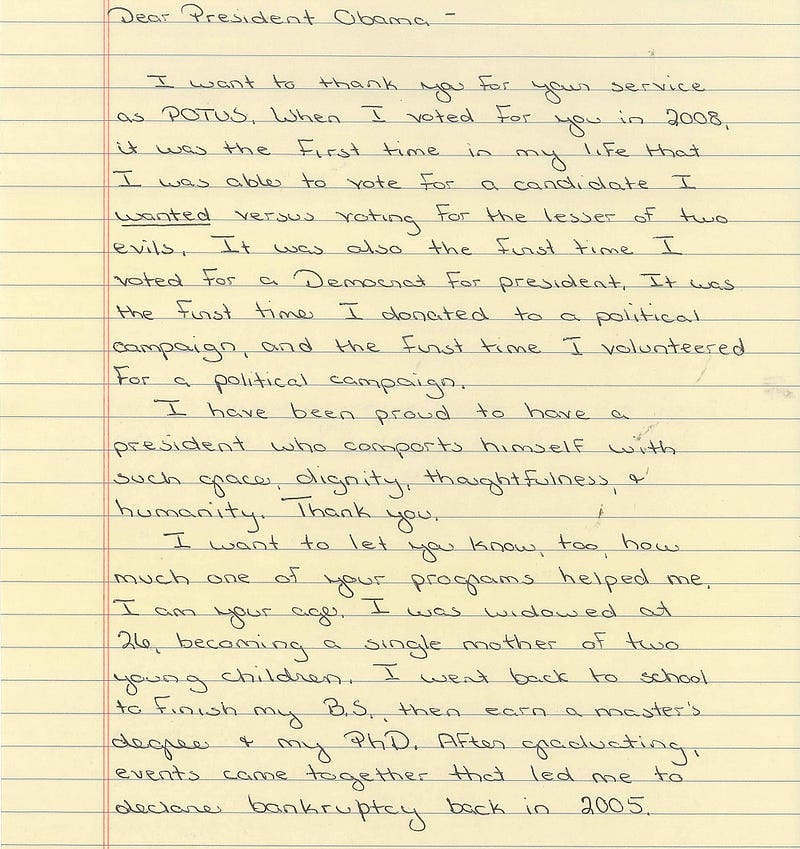 Dear President Obama -
I want to thank you for your service
as POTUS. When I voted for you in 2008,
it was the first time in my life that
I was able to vote for a candidate I
wanted versus voting for the lesser of two
evils. It was also the first time I
voted for a Democrat for president. It was
the first time I donated to a political
campaign, and the first time I volunteered
for a political campaign.
I have been proud to have a
president who comports himself with
such grace, dignity, thoughtfulness, &
humanity. Thank you.
I want to let you know, too, how
much one of your programs helped me.
I am your age. I was widowed at
26, becoming a single mother of two
young children. I went back to school
to finish my B.S., then earn a master's
degree & my PhD. After graduating,
events came together that led me to
declare bankruptcy back in 2005.